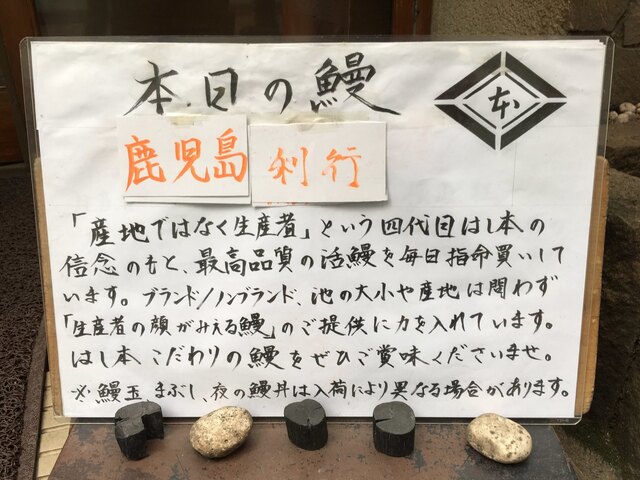 本日の鰻
本
鹿児島 利行
「産地ではなく生産者」という四代目はし本の
信念のもと、最高品質の活鰻を毎日指命買いして
います。ブランド/ノンブランド、池の大小や産地は問わず
「生産者の顔がみえる鰻」のご提供に力を入れています。
はし本こだわりの鰻をぜひご賞味くださいませ。
※鰻玉、まぶし、夜の鰻丼は入荷により異なる場合があります。